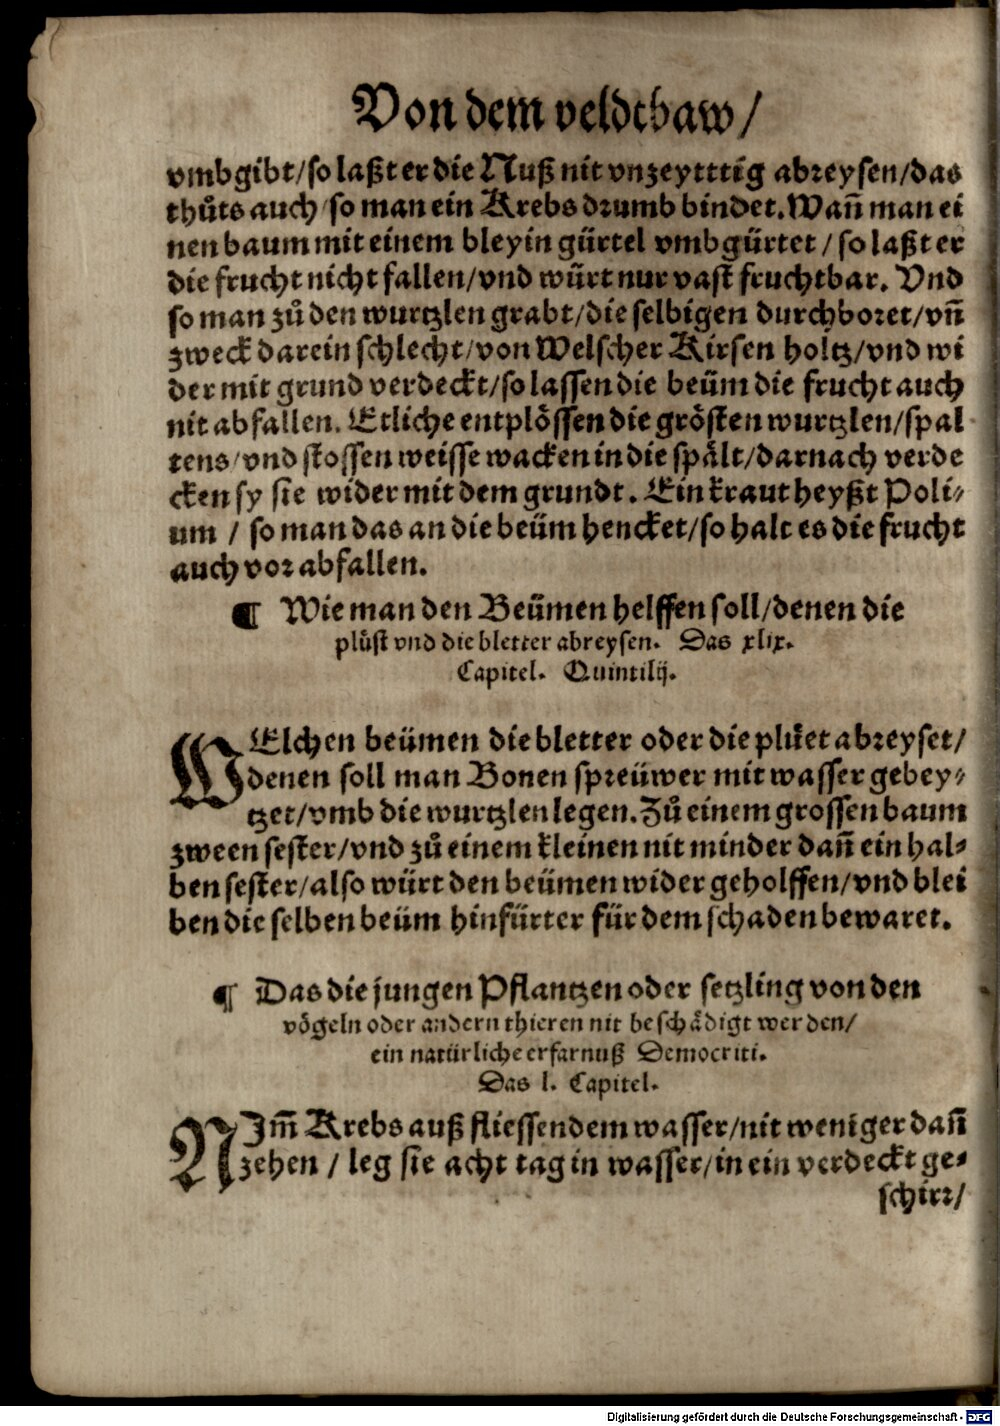 Von dem veldtbaw/
vmbgibt/so laßt er die Nuß nit vnzeytttig abreysen/das
thůts auch/so man ein Krebs drumb bindet. Wañ man ei
nen baum mit einem bleyin gürtel vmbgürtet/so laßt er
die frucht nicht fallen/vnd würt nur vast fruchtbar. Vnd
so man zů den wurtzlen grabt/die selbigen durchboret/vñ
zweck darein schlecht/von Welscher Kirsen holtz/vnd wi
der mit grund verdeckt/so lassen die beüm die frucht auch
nit abfallen. Etliche entplössen die grösten wurtzlen/spal
tens/vnd stossen weisse wacken in die spält/darnach verde
cken sy sie wider mit dem grundt. Ein kraut heyßt Poli⸗
um / so man das an die beüm hencket/so halt es die frucht
auch vor abfallen.
¶ Wie man den Beümen helffen soll/denen die
plůst vnd die bletter abreysen. Das xlix.
Capitel. Quintilij.
WElchen beümen die bletter oder die plůet abreyset/
denen soll man Bonen spreüwer mit wasser gebey⸗
tzet/vmb die wurtzlen legen. Zů einem grossen baum
zween sester/vnd zů einem kleinen nit minder dañ ein hal⸗
ben sester/also würt den beümen wider geholffen/vnd blei
ben die selben beüm hinfürter für dem schaden bewaret.
¶ Das die jungen Pflantzen oder setzling von den
vögeln oder andern thieren nit beschädigt werden/
ein natürliche erfarnuß Democriti.
Das l. Capitel.
NIm̃ Krebs auß fliessendem wasser/nit weniger dañ
zehen / leg sie acht tag in wasser/in ein verdeckt ge⸗
schirr/
Digitalisierung gefördert durch die Deutsche Forschungsgemeinschaft - DFG